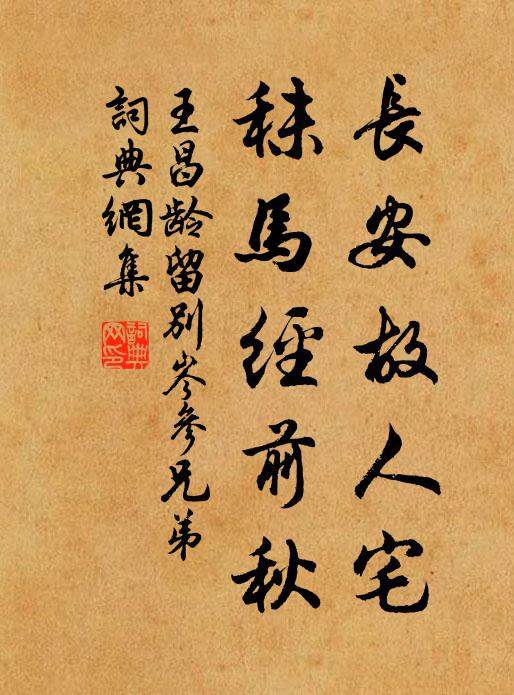 長安故人宅
秣馬經前秋
王昌龄留別岑參兄弟
詞典網集
詞典网印